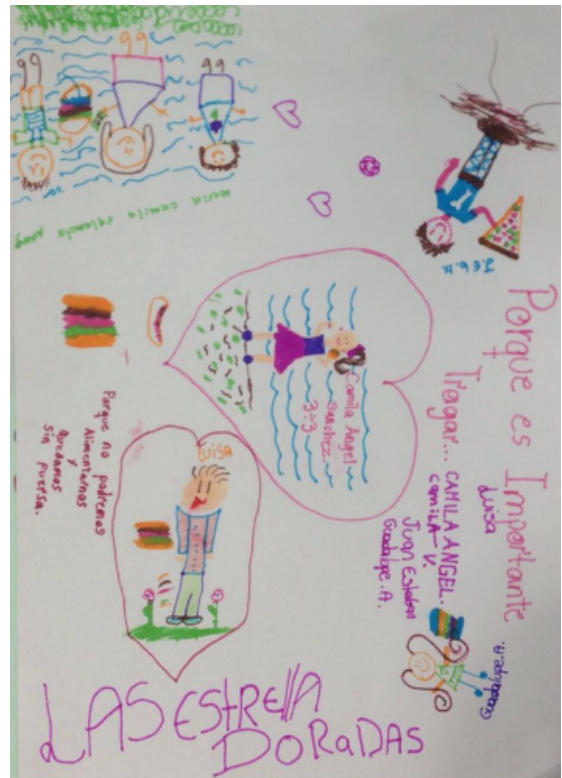 Porque es Importante
Tragar...
Luisa
CAMILA ANGEL.
camiLA-V.
Juan Esteban
Guadalupe.A.
J.E.G.H.
Guadalupe-A.
Maria camila valencia
Camila Angel
Sanchez
3-3
Luisa
Porque no podremos
Alimentarnos
y
quedamos
sin fuersa.
LAS EStRELLA
DORaDAS